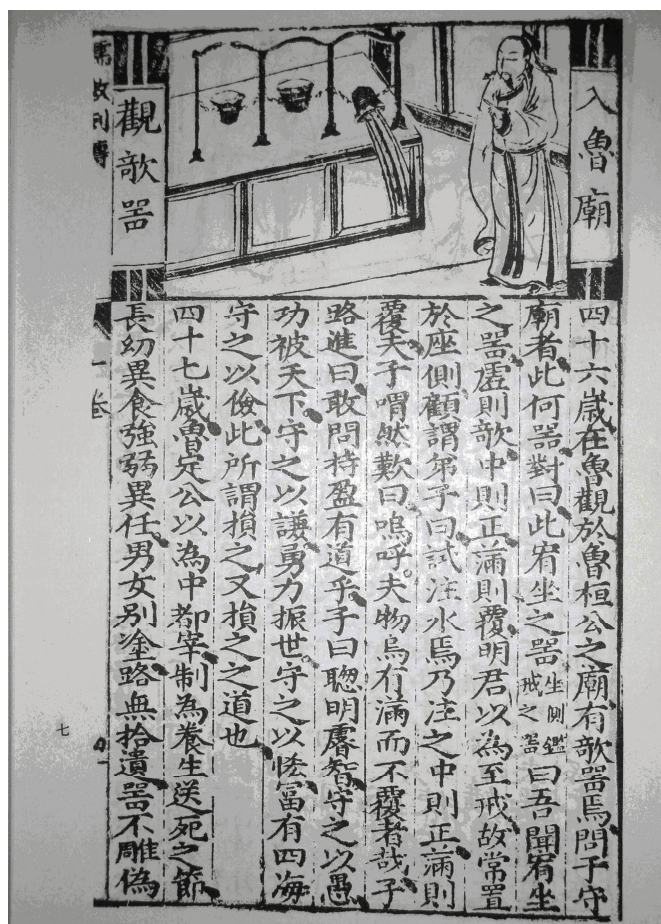 入魯廟
觀欹器
四十六歲在魯觀於魯桓公之廟有欹器焉問于守
廟者此何器對曰此宥坐之器坐側鑑戒之器曰吾聞宥坐
之器虛則欹中則正滿則覆明君以為至戒故常置
於座側顧謂弟子曰試注水焉乃注之中則正滿則
覆夫子喟然歎曰嗚呼夫物烏有滿而不覆者哉子
路進曰敢問持盈有道乎子曰聰明睿智守之以愚
功被天下守之以謙勇力振世守之以怯富有四海
守之以儉此所謂損之又損之之道也
四十七歲魯定公以為中都宰制為養生送死之節
長幼異食強弱異任男女別塗路無拾遺器不雕偽
儒教列傳
一卷
七